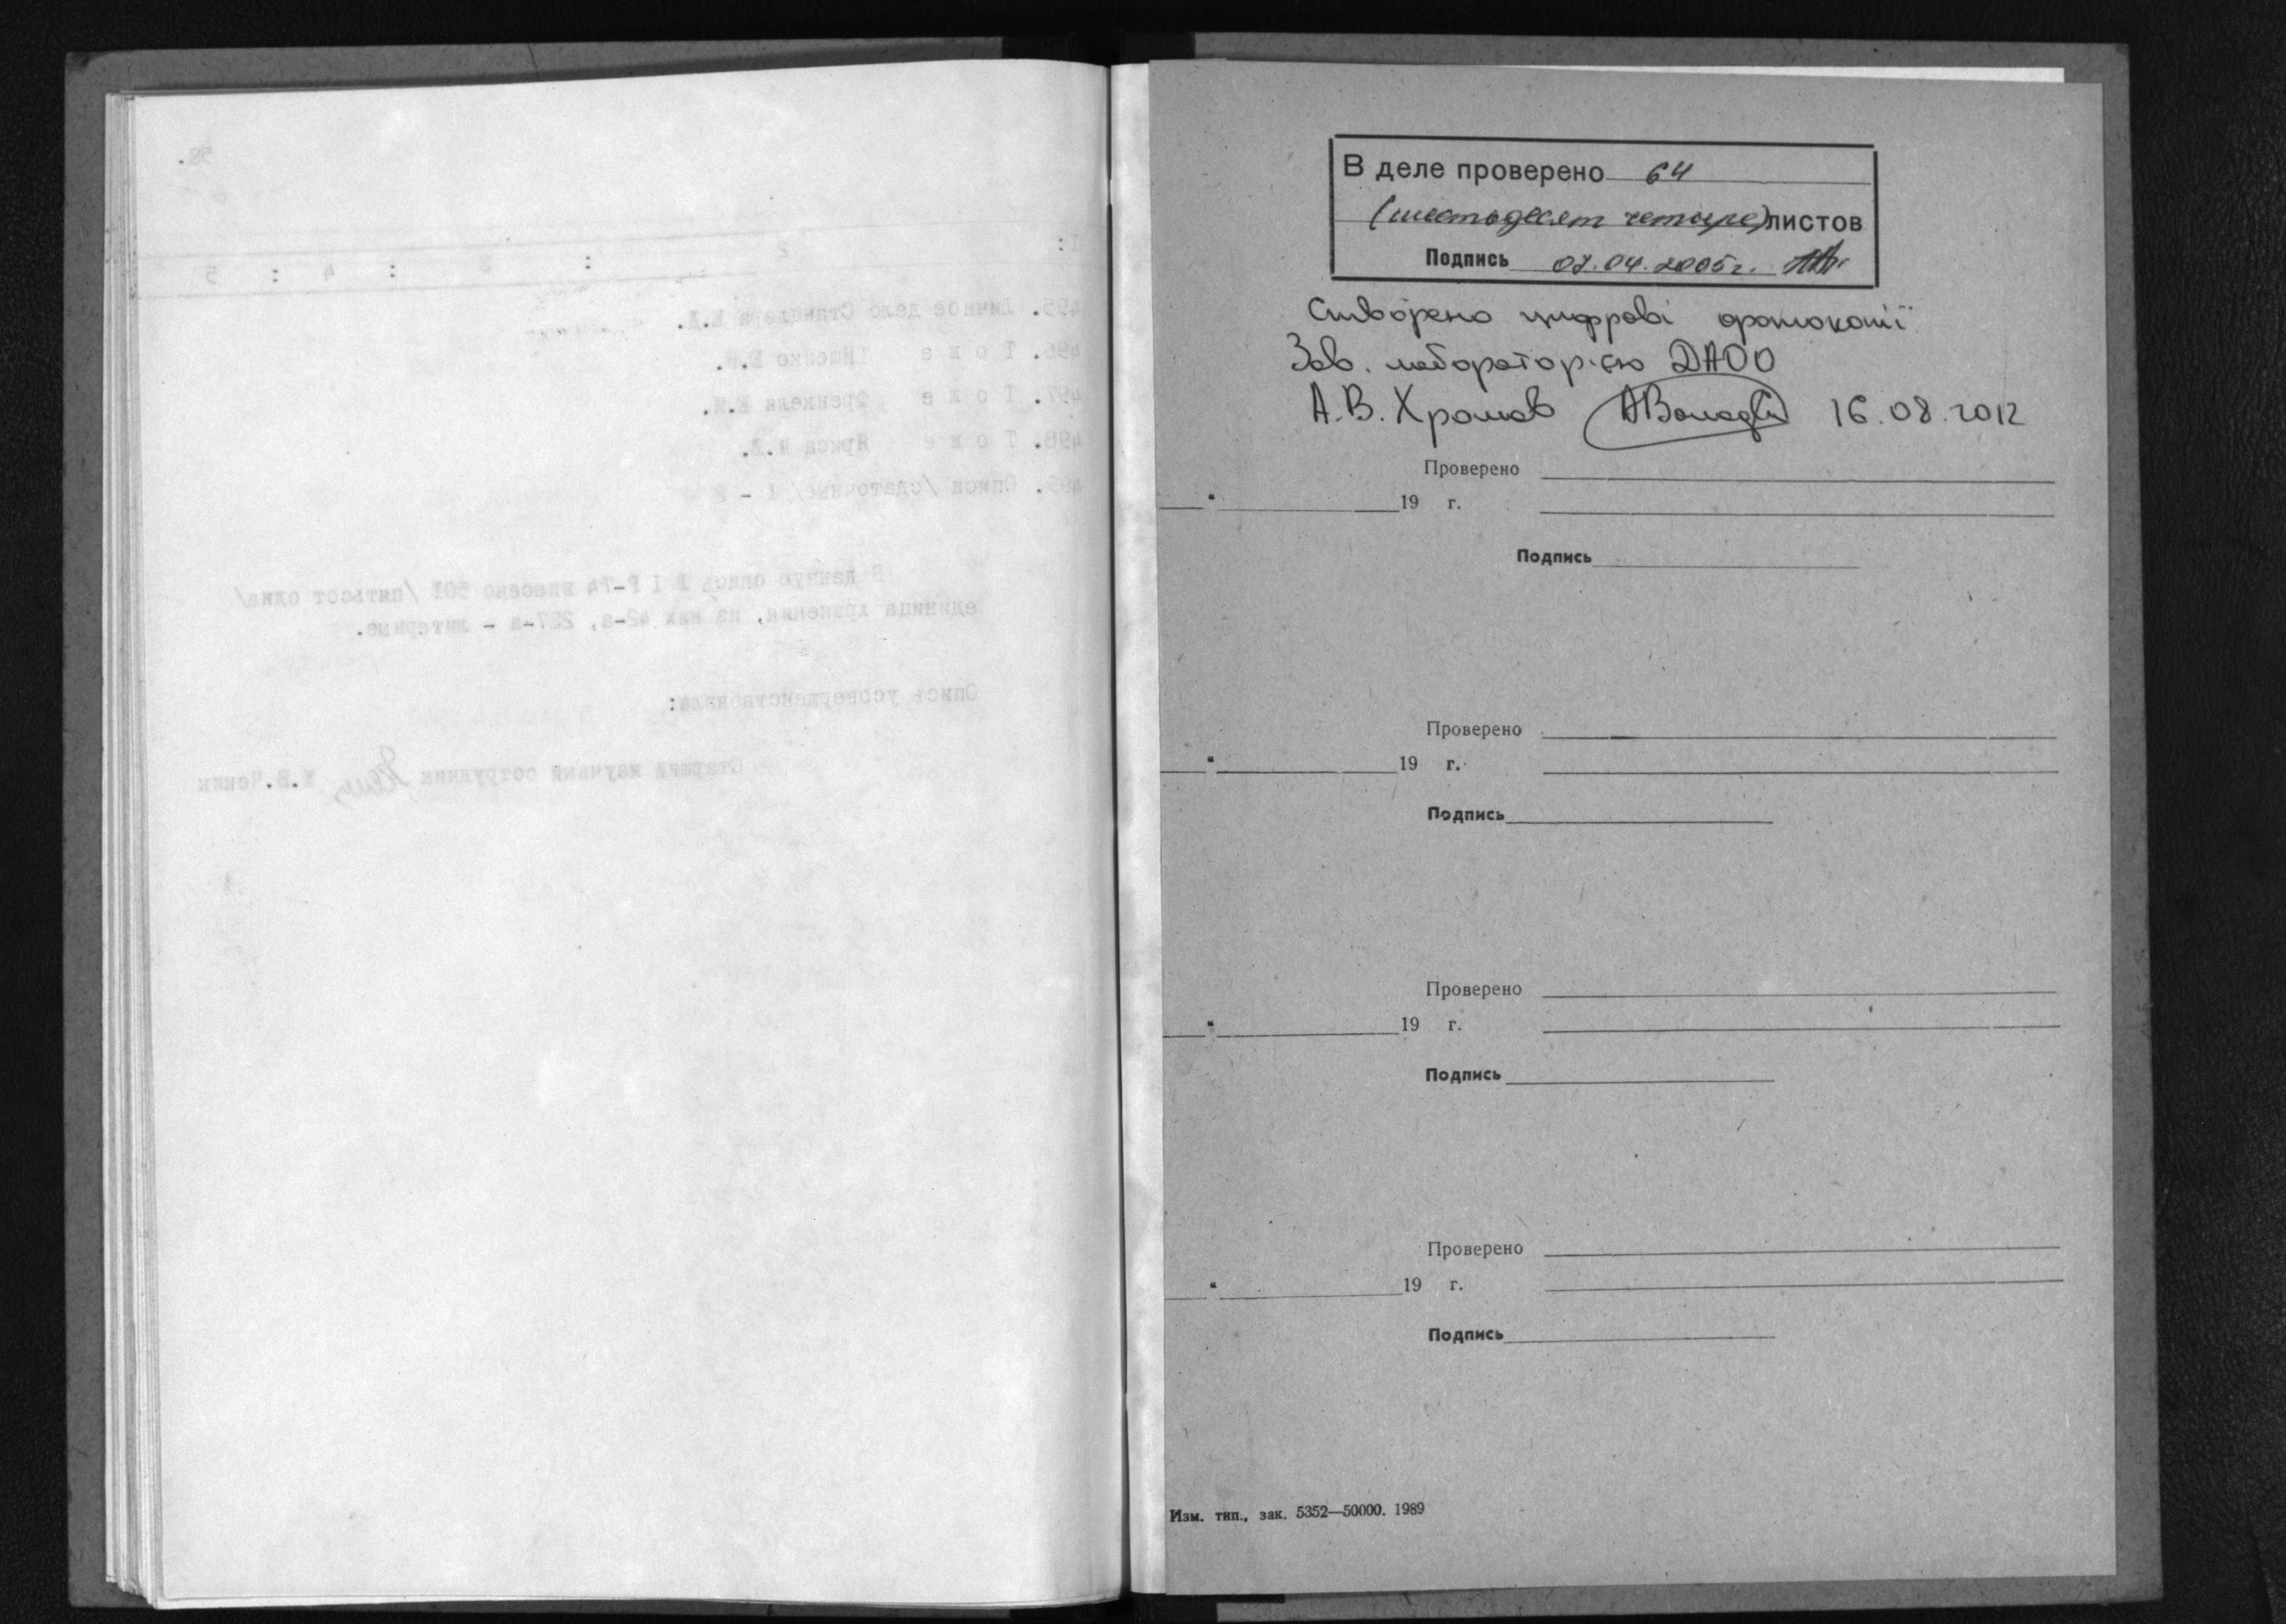 58.
1: 2 : 3 : 4 : 5
495. Личное дело
496. Т о ж е
497. Т о ж е Френкеля
498. Т о ж е
499. Списки /сдаточные/ 1 - 2
В данную опись № 1 Р-74 внесено 501 /пятьсот одна/
единица хранения, из них 42-а, 237-а - литерные.
Опись усовершенствовала:
Старший научный сотрудник
В деле проверено 64
(шестьдесят четыре) листов
Подпись 07.04.2005г.
Створено цифрові фотокопії
Зав. лабораторією ДАОО
А.В. Хромов 16.08.2012
Проверено
" 19 г.
Подпись
Проверено
" 19 г.
Подпись
Проверено
" 19 г.
Подпись
Проверено
" 19 г.
Подпись
Изм. тип., зак. 5352—50000. 1989